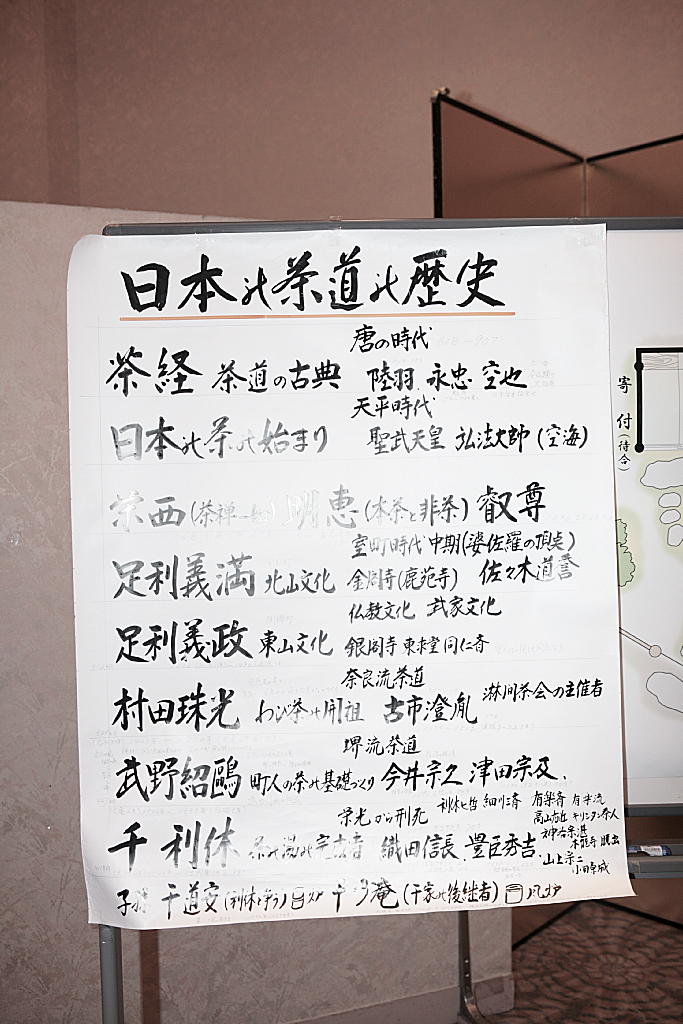 日本の茶道の歴史
唐の時代
茶経 茶道の古典 陸羽 永忠 空也
天平時代
日本の茶の始まり 聖武天皇 弘法大師(空海)
栄西(茶禅一味) 明恵(本茶と非茶) 叡尊
室町時代 中期(婆佐羅の頂点)
足利義満 北山文化 金閣寺(鹿苑寺) 佐々木道誉
仏教文化 武家文化
足利義政 東山文化 銀閣寺 東求堂 同仁斎
奈良流茶道
村田珠光 わび茶の開祖 古市澄胤 淋间茶会の主催者
堺流茶道
武野紹鷗 町人の茶の基礎づくり 今井宗久 津田宗及
栄光から刑死 利休七哲 細川三斎 有楽斎 有楽流
高山右近 キリシタン茶人
千利休 茶の湯の完立者 織田信長 豊臣秀吉 山上宗二
本能寺 脱出
小田原城
子孫 千道安(利休と争う) 千少庵(千家の後継者)
寄付(待合)